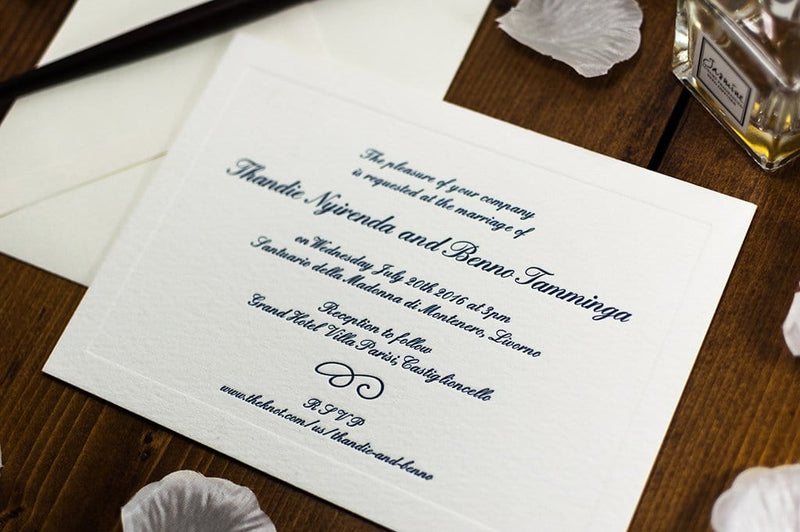 The pleasure of your company
is requested at the marriage of
Thandie Nyirenda and Benno Tamminga
on Wednesday July 20th 2016 at 3pm
Santuario della Madonna di Montenero, Livorno
Reception to follow
Grand Hotel Villa Parisi, Castiglioncello
RSVP
www.theknot.com/us/thandie-and-benno
Jasmine